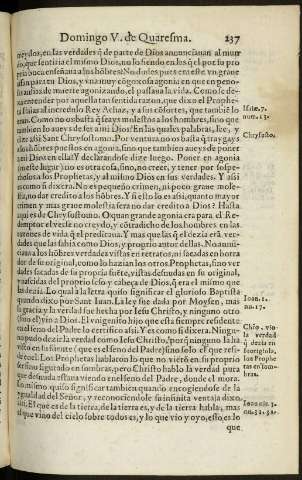 Domingo V. de Quaresma. 237
treydos, en las verdades q̃ de parte de Dios anunciauan al mun
do, que sentiria el mismo Dios, no lo siendo en los q̃ el por su pro
pria boca enseñaua a los hõbres? No dudes pues en este vn graue
ansia para tu Dios, y vna muy cõgoxosa agonia en que en peno-
sissima de muerte agonizando, el passaua la vida. Como le de-
entender por aquella tan sentida razon, que dixo el Prophe-
Isaias al incredulo Rey Achaz, y a sus cõsortes, que tambi lo
eran. Como no os basta q̃ seays molestos a los hombres, sino que
tambien lo aueys de ser a mi Dios? En las quales palabras, lee, y
dize assi San Chrysostomo. Por ventura no os basta q̃ traygays
a los hõbres puestos en agonia, sino que tambien aueys de poner
a mi Dios en ella? Y declarandose dize luego. Poner en agonia
en este lugar no es otra cosa, sino, no creer, y tener por sospe-
chosos a los Prophetas, y al mismo Dios en sus verdades. Y assi
es como si dixera. No es pequeño crimen, ni poco graue mole-
stia, no dar credito a los hõbres. Y si el lo es assi, quanto mayor
crimen y mas graue molestia sera no dar credito a Dios? Hasta
aqui es de Chrysostomo. O quan grande agonia era para el Re-
demptor el verse no creydo, y cõtradicho de los hombres en las
razones de vida q̃ el predicaua. Y mas que las q̃ el dezia erã ver-
dades que las sabia como Dios, y proprio autor dellas. No anun-
ciaua a los hõbres verdades vistas en retratos, ni sacadas en borra
dor de su original, como lo hazian los otros Prophetas, sino ver
dades sacadas de su propria fuẽte, vistas desnudas en su original,
nascidas del proprio seso y cabeça de Dios, q̃ era el mismo que
las dezia. Lo qual a la letra quiso significar el glorioso Baptista
quando dixo por Sant Iuan. La ley fue dada por Moysen, mas
la gracia y la verdad fue hecha por Iesu Christo, y ninguno otro
sino el vio a Dios. El vnigenito hijo que esta siempre residente
en el seno del Padre lo certifico assi. Y es como si dixera. Ningu-
no pudo dezir la verdad como Iesu Christo, porq̃ ninguno la ha
visto en su fuente (que es el seno del Padre) sino solo el que res-
de en el. Los Prophetas hablaron lo que no vierõ en su proprio
ser sino figurado en sombras, pero Christo hablo la verdad pura
que desnuda estaua viendo en el seno del Padre, donde el mora.
Lo mismo quiso significar tambien quando encogiendose de la
ygualdad del Señor, y reconociendole su infinita ventaja dixo.
El que es de la tierra, de la tierra es, y de la tierra habla, mas
el que vino del cielo sobre todos es, y lo que vio y oyo, esto es lo
que
Isaie. 7.
num. 13.
Chrysosto.
Ioan. 1.
nu. 17.
Chro. vio
la verdad
q̃ dezia en
su original,
los Prophe
tas en som-
bras.
Ioannis. 3.
nu. 31. 32.